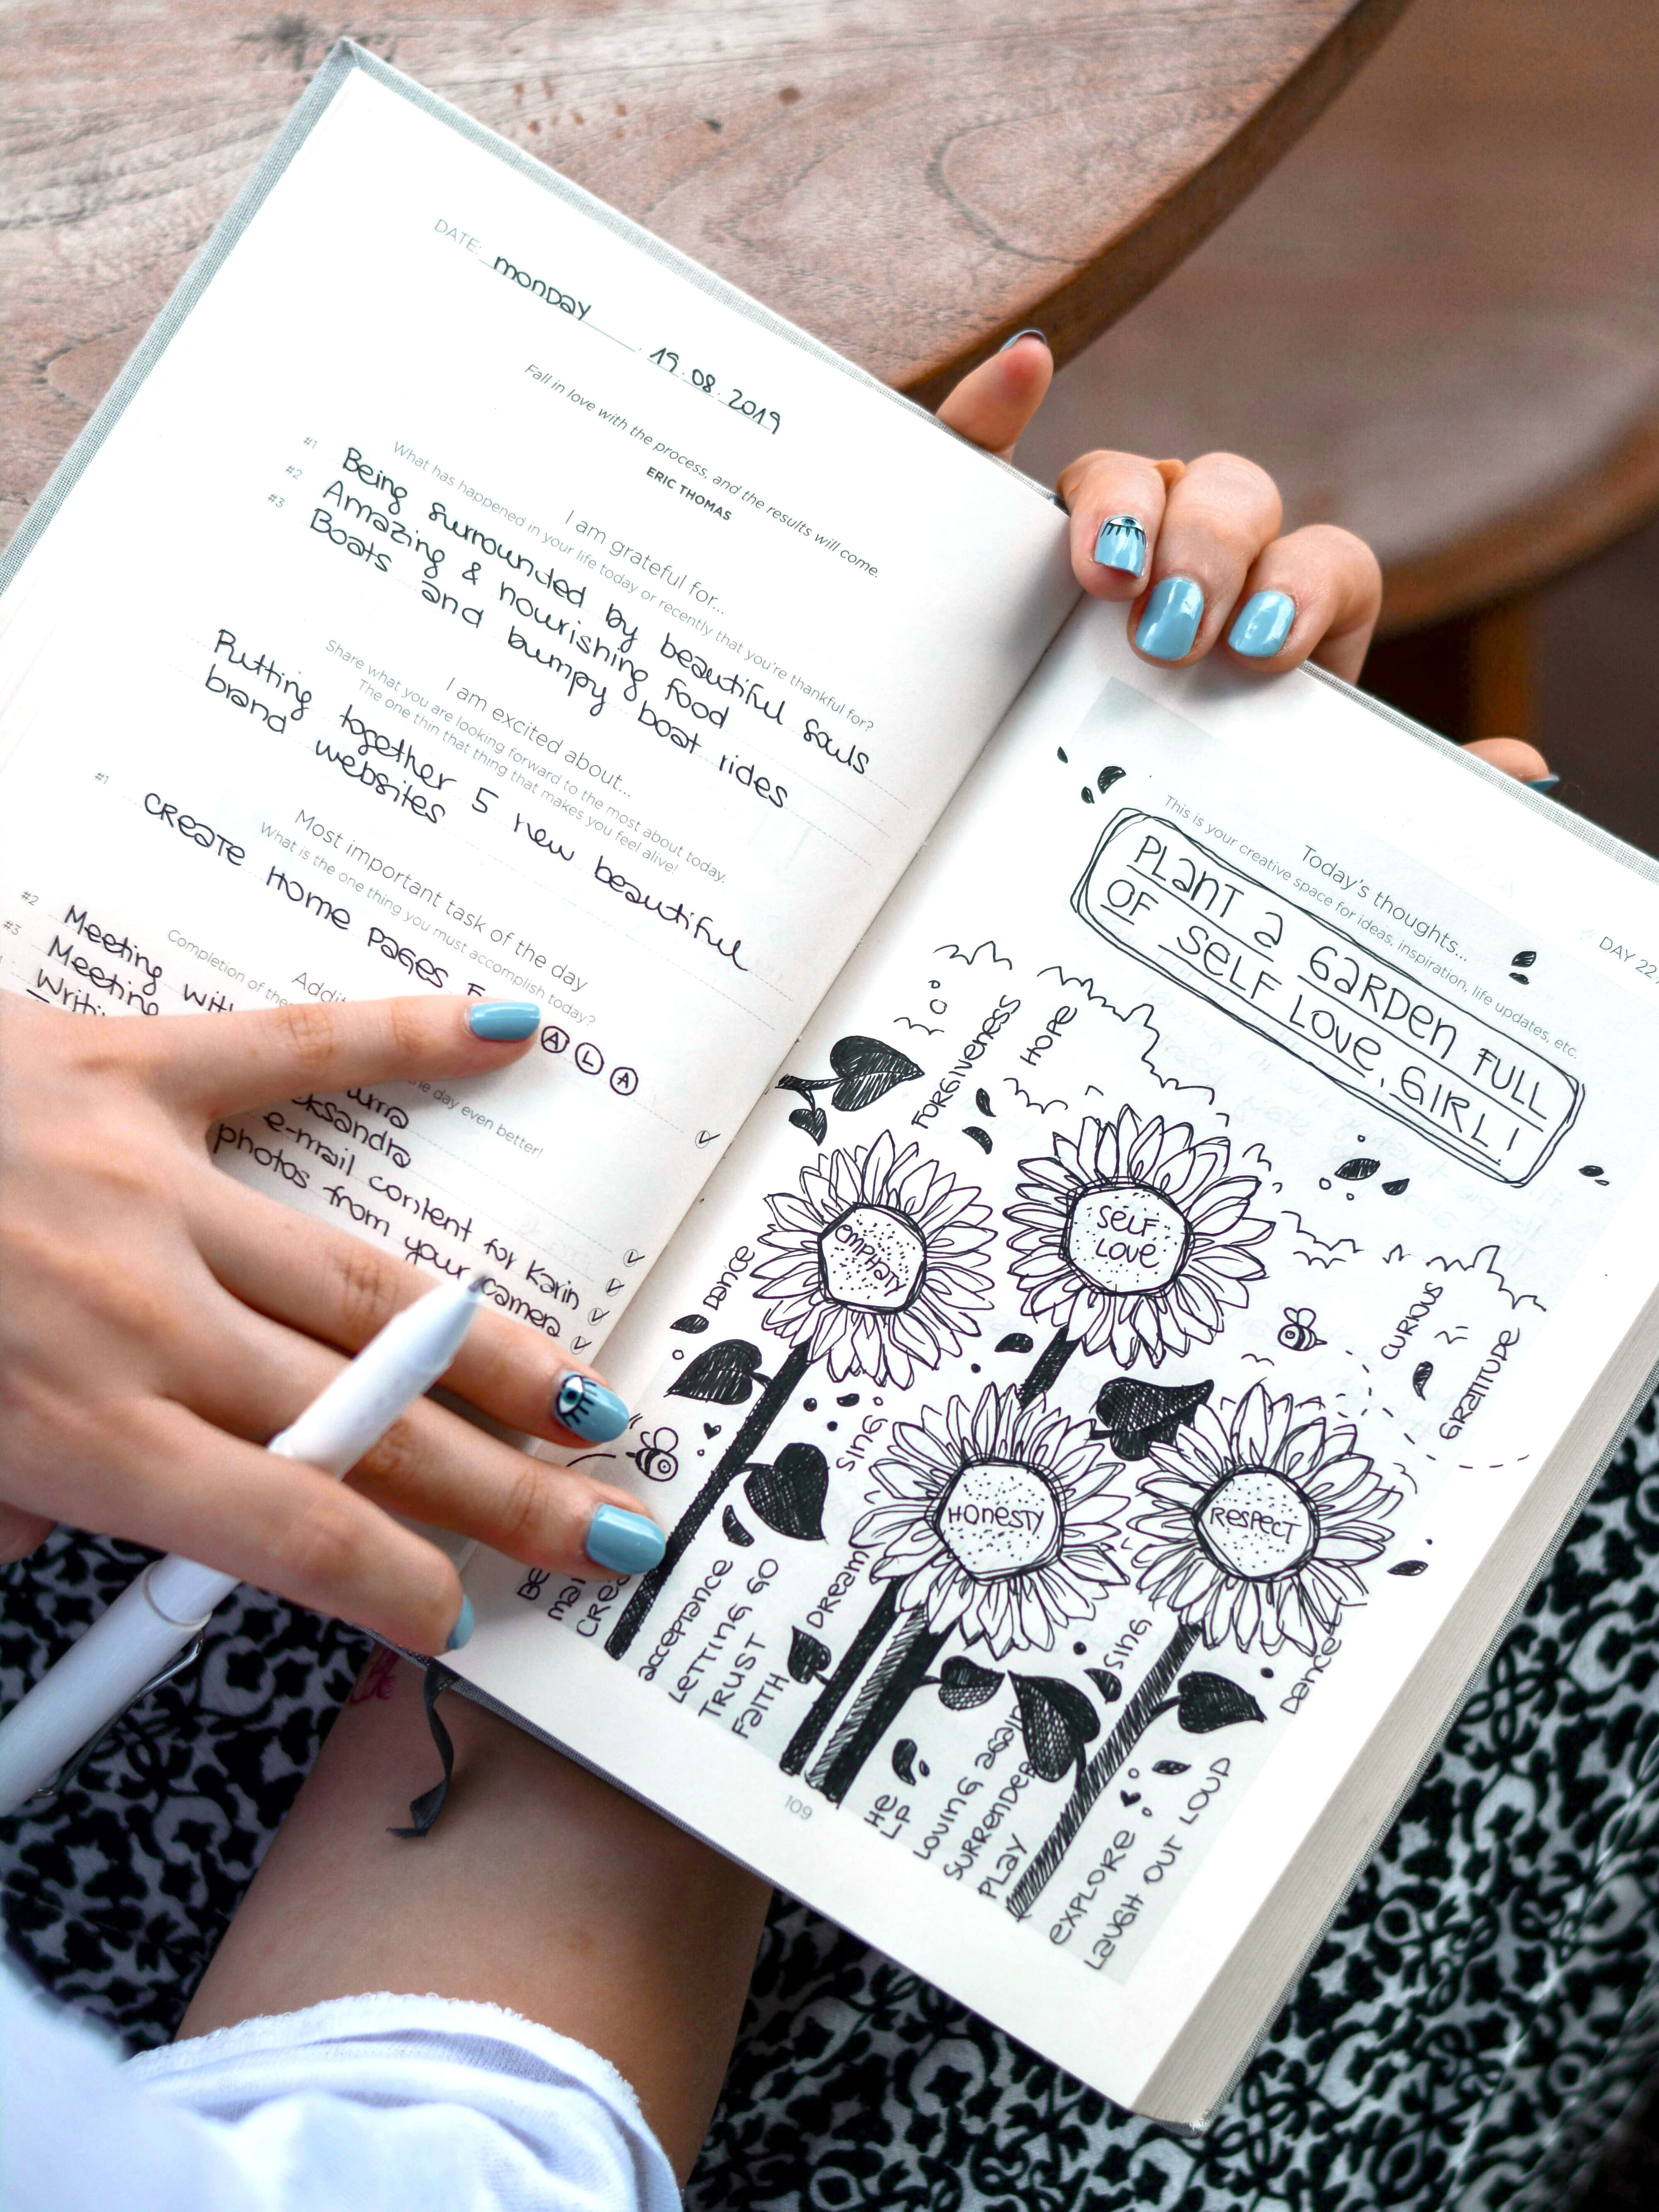 DATE: monday . 19.08.2019
Fall in love with the process, and the results will come.
ERIC THOMAS
I am grateful for...
What has happened in your life today or recently that you're thankful for?
#1 Being surrounded by beautiful souls
#2 Amazing & nourishing food
#3 Boats and bumpy boat rides
I am excited about...
Share what you are looking forward to the most about today.
The one thin that thing that makes you feel alive!
Putting together 5 new beautiful
brand websites
Most important task of the day
What is the one thing you must accomplish today?
#1 CREATE HOME PAGES F
A L A
Addit
Completion of the
the day even better!
#2 Meeting with
#3 Meeting
Writi
e-mail content for Karin
photos from your camera
DAY 22
Today's thoughts...
This is your creative space for ideas, inspiration, life updates, etc.
PLANT a GARDEN FULL
OF SELF LOVE, GIRL!
FORGIVENESS
HOPE
EMPHATY
SELF
LOVE
DANCE
CURIOUS
GRATITUDE
SING
HONESTY
RESPECT
BE
mai
Crea
acceptance
LETTING GO
TRUST
FAITH
DREAM
SING
Dance
HE
LP
LOVING again
SURRENDER
PLAY
EXPLORE
LAUGH OUT LOUD
109